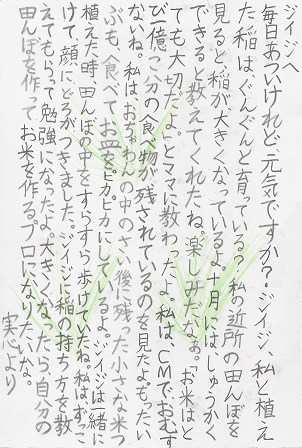 ジイジへ
毎日あついけれど、元気ですか？ジイジ、私と植え
た稲は、ぐんぐんと育っている？私の近所の田んぼを
見ると稲が大きくなっているよ。十月にはしゅうかく
できると教えてくれたね。楽しみだなぁ。お米はと
ても大切だよ。とママに教わったよ。私は、CMでおむす
び一億こ分の食べ物が残されているのを見たよ。もったい
ないね。私は、おちゃわんの中のさい後に残った小さな米つ
ぶも、食べてお皿をピカピカにしているよ。ジイジは一緒に
植えた時、田んぼの中をすらすら歩けていたね。私は、ずっこ
けて、顔にどろがつきました。ジイジに稲の持ち方を教
えてもらって勉強になったよ。大きくなったら、自分の
田んぼを作ってお米を作るプロになりたいな。
実心より